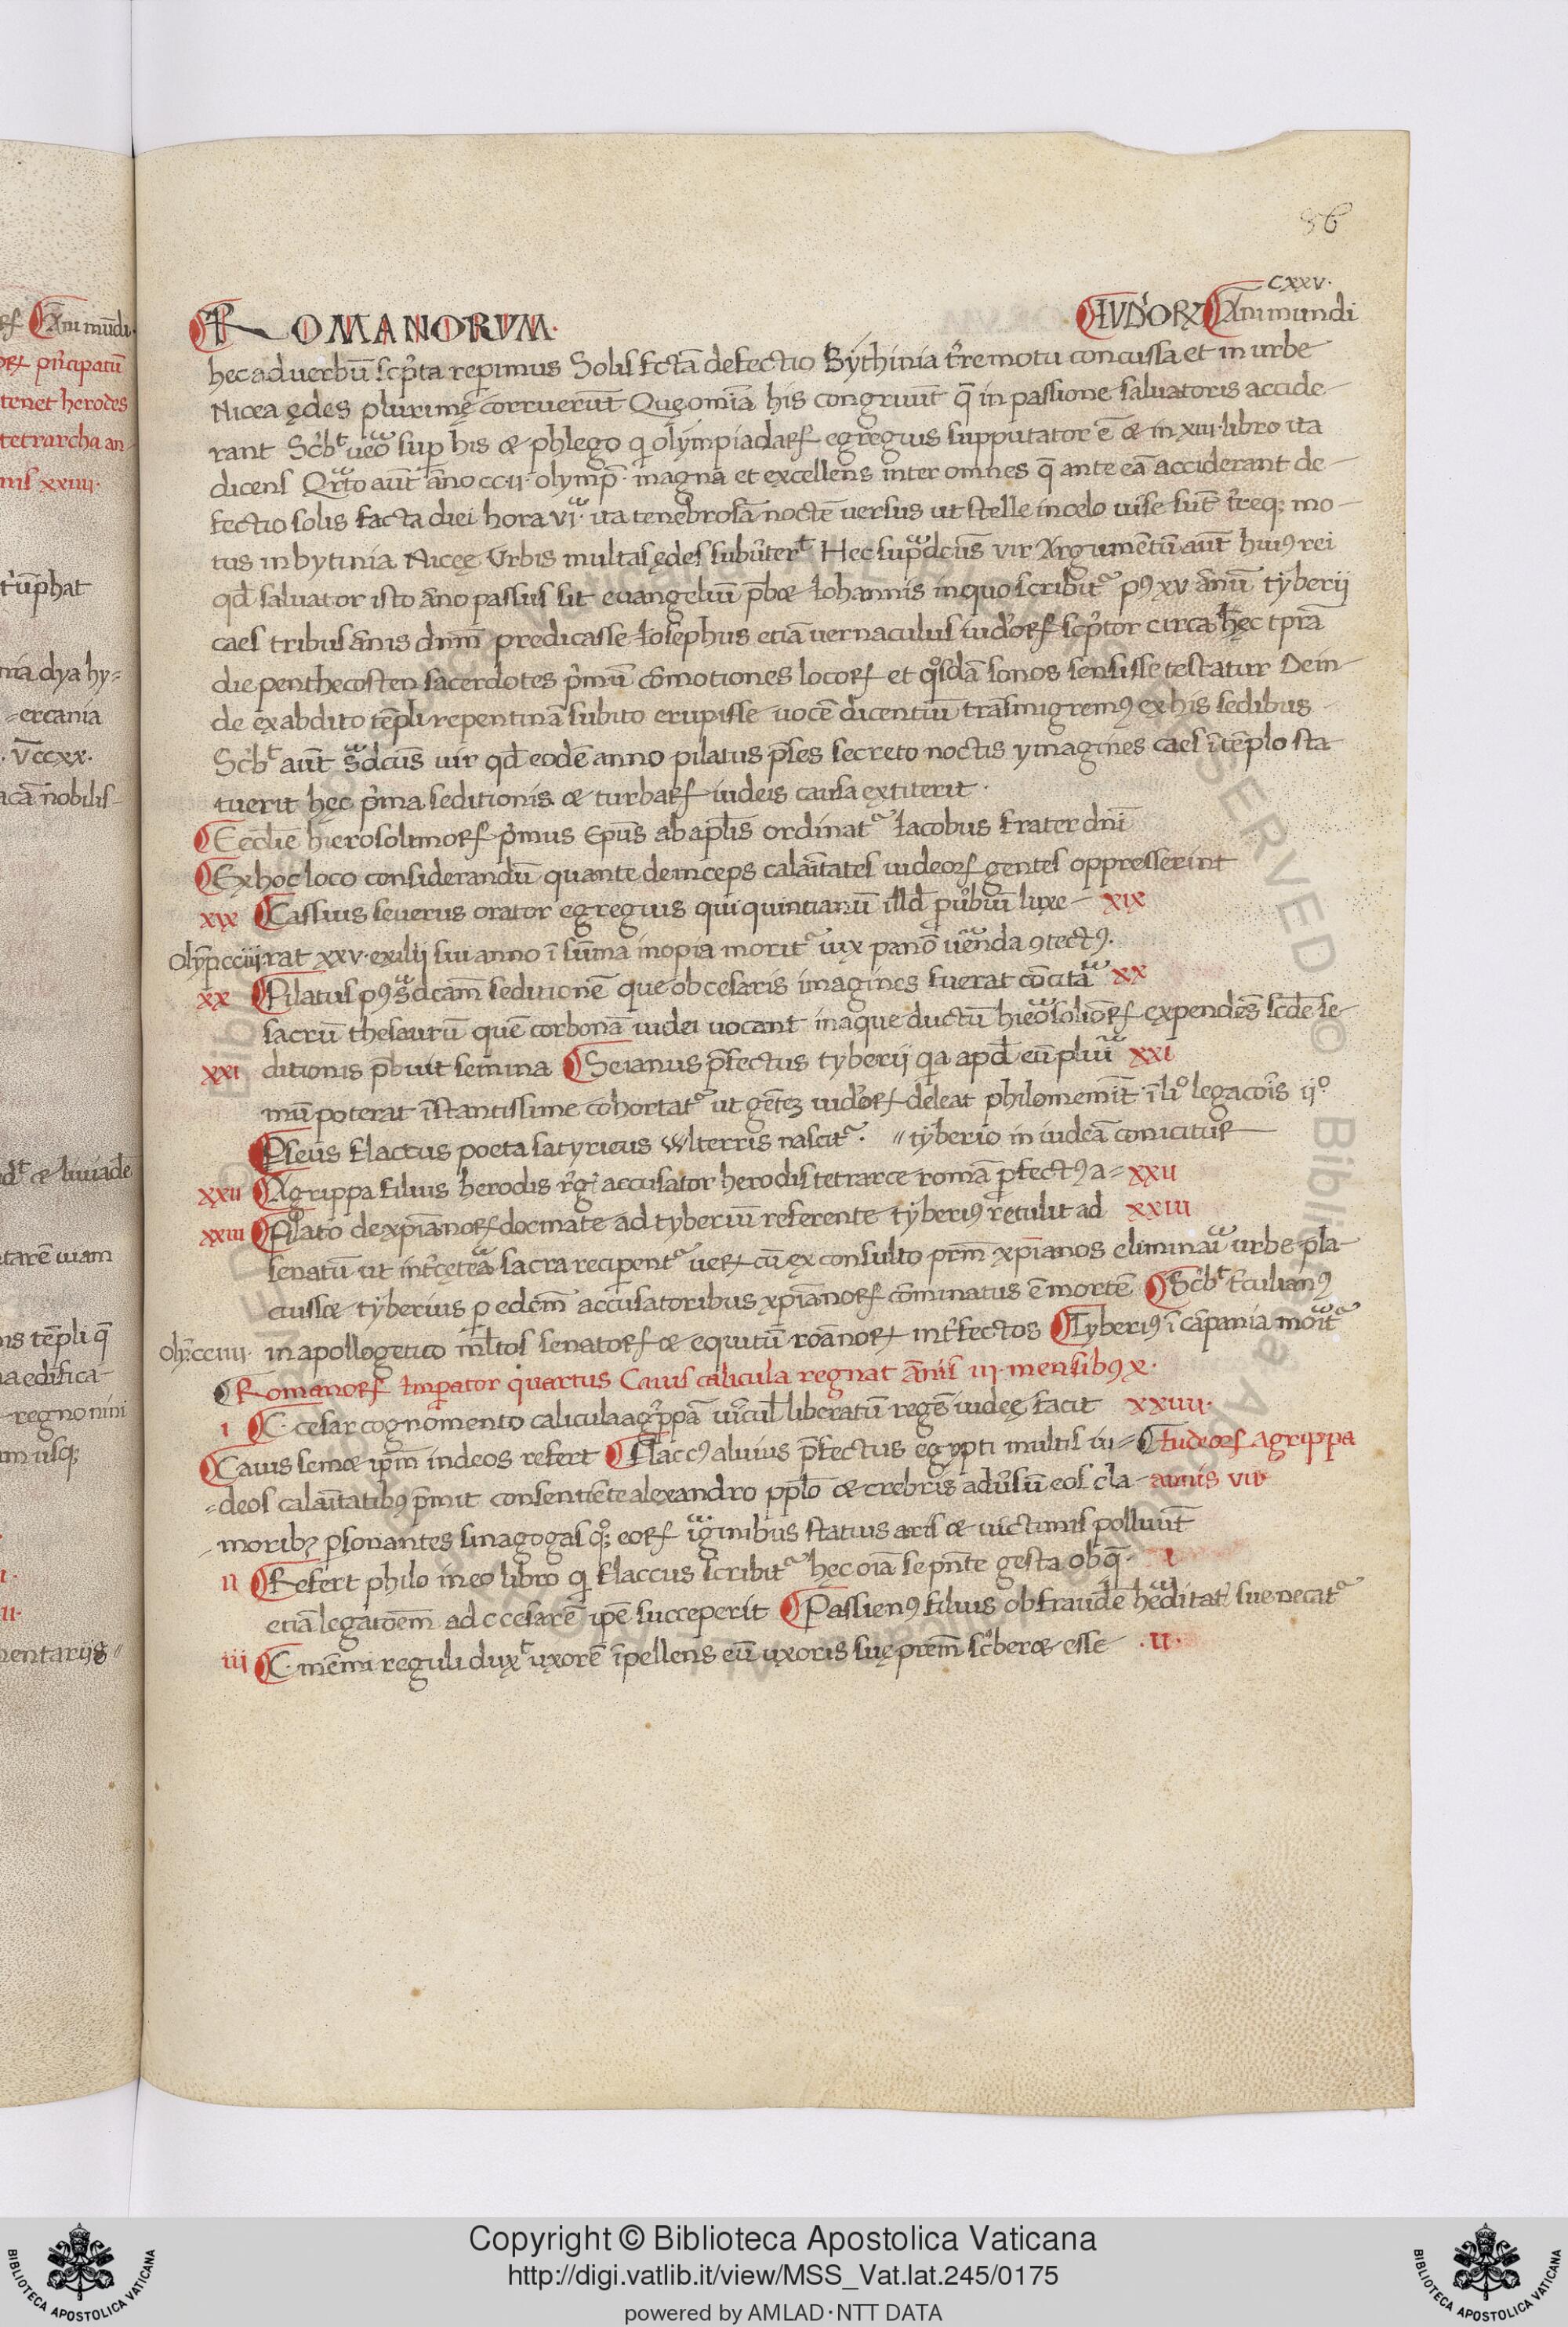 86
cxxv.
ROMANORVM. IVD'ORꝜ Anni mundi
hec ad uerbū scp̄ta rep̄imus Solis fctā defectio Bythinia t̄re motu concussa et in urbe
Nicea ędes plurimę corruerūt Quę omīa his congruūt q̄ in passione saluatoris accide-
rant Sc̄bt ueo sup his & phlego q olympiadaꝝ egregius supputator ē & in xiii libro ita
dicens Qrto aūt āno cc.ii. olymp̄. magna et excellens inter omnes q̄ ante eā acciderant de-
fectio solis facta diei hora vi. ita tenebrosā noctē versus ut stelle in celo uise sūt t̄req; mo-
tus in bytinia Nicęę Vrbis multas ędes subūtert Hec sup̄dcūs vir Argumētū aūt huiꝰ rei
qd̄ saluator isto āno passus sit euangeliū p̄b& Iohannis in quo scribit᷑ pꝰ xv ānū tyberij
caes tribus ānis dnm̄ predicasse Iosephus etiā uernaculus iud'oꝝ scp̄tor circa hęc tp̄ra
die penthecosten sacerdotes p̄mū cōmotiones locoꝝ et qͦsdā sonos sensisse testatur Dein-
de ex abdito tēpli repentinā subito erupisse uocē dicentiū trāsmigremꝰ ex his sedibus
Sc̄bt aūt sdcūs uir qd̄ eodē anno pilatus p̄ses secreto noctis ymagines caes ī tēplo sta
tuerit hęc p̄ma seditionis & turbaꝝ iudeis causa extiterit.
Eccl̄ie hierosolimoꝝ p̄mus Ep̄us ab apl̄is ordinat᷑ Iacobus frater dn̄i
Ex hoc loco considerandū quante deinceps calaītates iudeoꝝ gentes oppresserint
xix Cassius seuerus orator egregius qui quintianū illd̄ pͦubiū luxe- xix
Olyp̄.cciii. rat xxv. exilij sui anno ī sūma inopia morit᷑ uix panō uēnda ꝯtectꝰ.
xx Pilatus pꝰ sdcām seditionē que ob cesaris imagines fuerat cōcita xx
sacrū thesaurū quē corbonā iudei uocant in aque ductū hieosolioꝝ expendēs scdē se-
xxi ditionis p̄buit semina Seianus p̄fectus tyberij qa apd̄ eū pluī xxi
mū poterat īstantissime cohortat᷑ ut gētē iud'oꝝ deleat philo memīt ī liͦ legacōis iiͦ
Pseus flactus poeta satyricus wlterris nascit᷑. // tyberio in iudeā conicitur
xxii Agrippa filius herodis r̄g accusator herodis tetrarce romā p̄fectꝰ a= xxii
xxiii Pilato de xp̄ianoꝝ docmate ad tyberiū referente tyberiꝰ retulit ad xxiii
senatū ut int̄ cętea sacra recip̄ent᷑ ueꝝ cū ex consulto prm̄ xp̄ianos eliminai urbe pla-
cuiss& tyberius p̄ edcm̄ accusatoribus xp̄ianoꝝ cōminatus ē mortē Sc̄bt t̄culianꝰ
Oly.cciiii. in apollogetico ml̄tos senatoꝝ & equitū roānoꝝ int̄fectos Tyberiꝰ ī cāpania moit᷑
Romanoꝝ Imp̄ator quartus Caius calicula regnat ānis iij mensibꝰ x.
i C cesar cognomento calicula agppā uīcul̄ liberatū regē iudeę facit xxiiii.
Caius sem& ip̄m in deos refert Flaccꝰ aluius p̄fectus egypti multis iu= Iudeoꝝ Agrippa
=deos calaītatibꝰ p̄mit consentiēte alexandro pplō & crebris adūsū eos cla- annis vii
-moribꝫ p̄sonantes sinagogas qͦ; eoꝝ iginibus statuis aris & uictimis polluūt
ii Refert philo in eo libro q flaccus scribit᷑ hęc oīa se pn̄te gesta ob q̄. i
etiā legatōem̄ ad c cesarē ip̄e susceperit Passienꝰ filius ob fraudē heditat sue necat᷑
iii C. mēmi reguli duxt uxorē īpellens eū uxoris suę prem̄ scͥber& esse .ii.
Copyright © Biblioteca Apostolica Vaticana
http://digi.vatlib.it/view/MSS_Vat.lat.245/0175
powered by AMLAD·NTT DATA
BIBLIOTECA APOSTOLICA VATICANA
BIBLIOTECA APOSTOLICA VATICANA